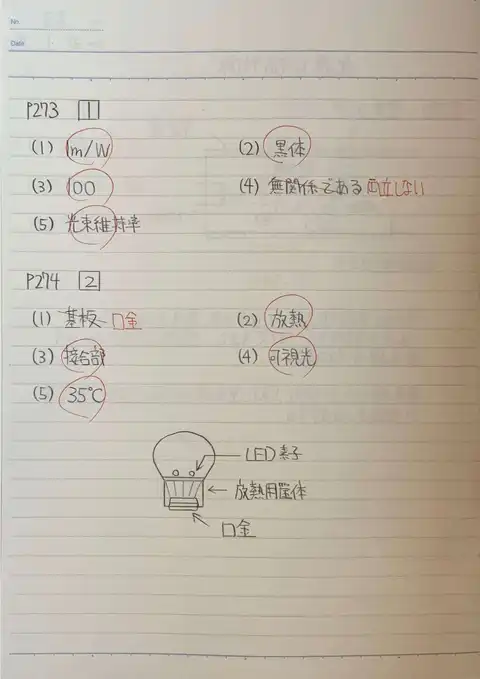 No.
Date
P273 1
(1) lm/W (2) 黒体
(3) 100 (4) 無関係である 両立しない
(5) 光束維持率
P274 2
(1) 基板 口金 (2) 放熱
(3) 接合部 (4) 可視光
(5) 35℃
LED素子
放熱用筐体
口金